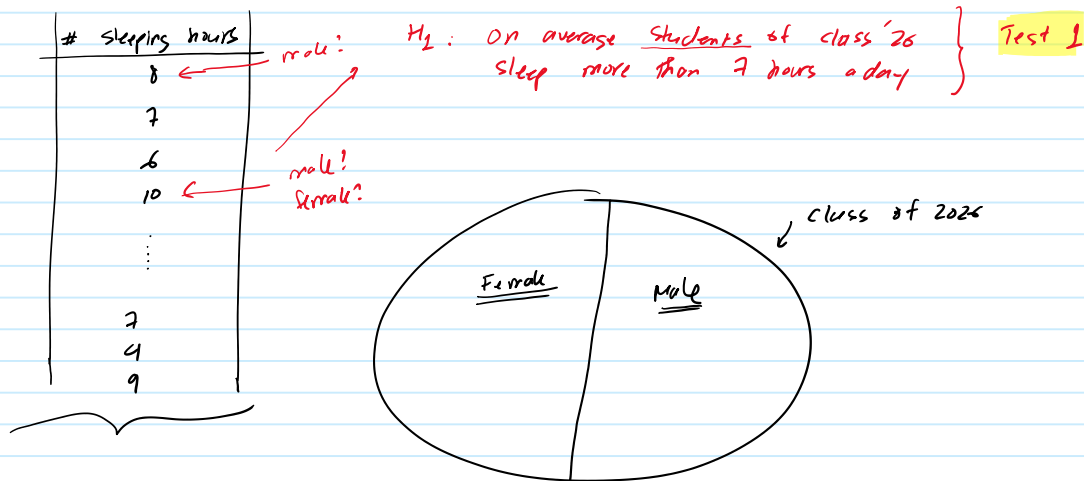 # sleeping hours
8
7
6
10
7
4
9
male?
male?
female?
H1: On average students of class '26
sleep more than 7 hours a day
Test 1
class of 2026
Female
Male